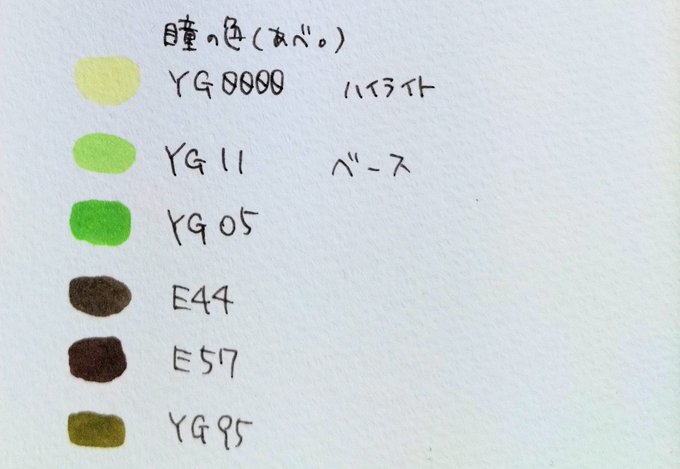 瞳の色(あべ。)
YG0000 ハイライト
YG11 ベース
YG05
E44
E57
YG95